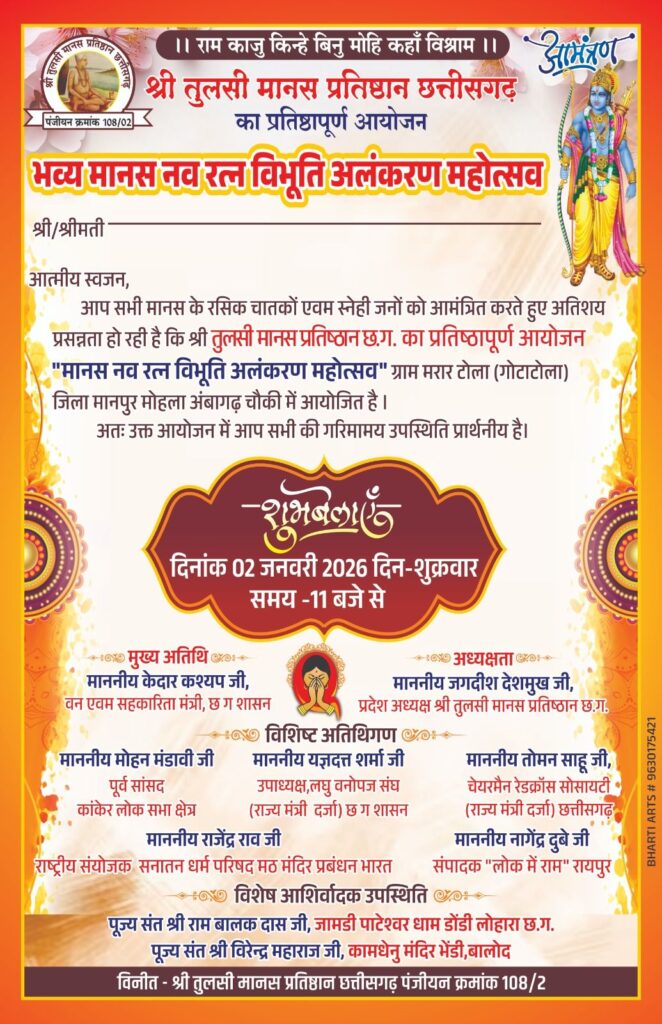 ।। राम काजु किन्हे बिनु मोहि कहाँ विश्राम ।।
आमंत्रण
श्री तुलसी मानस प्रतिष्ठान छत्तीसगढ़
पंजीयन क्रमांक 108/02
श्री तुलसी मानस प्रतिष्ठान छत्तीसगढ़
का प्रतिष्ठापूर्ण आयोजन
भव्य मानस नव रत्न विभूति अलंकरण महोत्सव
श्री/श्रीमती
आत्मीय स्वजन,
आप सभी मानस के रसिक चातकों एवम स्नेही जनों को आमंत्रित करते हुए अतिशय
प्रसन्नता हो रही है कि श्री तुलसी मानस प्रतिष्ठान छ.ग. का प्रतिष्ठापूर्ण आयोजन
"मानस नव रत्न विभूति अलंकरण महोत्सव" ग्राम मरार टोला (गोटाटोला)
जिला मानपुर मोहला अंबागढ़ चौकी में आयोजित है ।
अतः उक्त आयोजन में आप सभी की गरिमामय उपस्थिति प्रार्थनीय है।
शुभबेलाएँ
दिनांक 02 जनवरी 2026 दिन-शुक्रवार
समय -11 बजे से
मुख्य अतिथि
माननीय केदार कश्यप जी,
वन एवम सहकारिता मंत्री, छ ग शासन
अध्यक्षता
माननीय जगदीश देशमुख जी,
प्रदेश अध्यक्ष श्री तुलसी मानस प्रतिष्ठान छ.ग.
विशिष्ट अतिथिगण
माननीय मोहन मंडावी जी
पूर्व सांसद
कांकेर लोक सभा क्षेत्र
माननीय यज्ञदत्त शर्मा जी
उपाध्यक्ष,लघु वनोपज संघ
(राज्य मंत्री दर्जा) छ ग शासन
माननीय तोमन साहू जी,
चेयरमैन रेडक्रॉस सोसायटी
(राज्य मंत्री दर्जा) छत्तीसगढ़
माननीय राजेंद्र राव जी
राष्ट्रीय संयोजक सनातन धर्म परिषद मठ मंदिर प्रबंधन भारत
माननीय नागेंद्र दुबे जी
संपादक "लोक में राम" रायपुर
विशेष आशिर्वादक उपस्थिति
पूज्य संत श्री राम बालक दास जी, जामडी पाटेश्वर धाम डोंडी लोहारा छ.ग.
पूज्य संत श्री विरेन्द्र महाराज जी, कामधेनु मंदिर भेंडी,बालोद
विनीत - श्री तुलसी मानस प्रतिष्ठान छत्तीसगढ़ पंजीयन क्रमांक 108/2
BHARTI ARTS # 9630175421